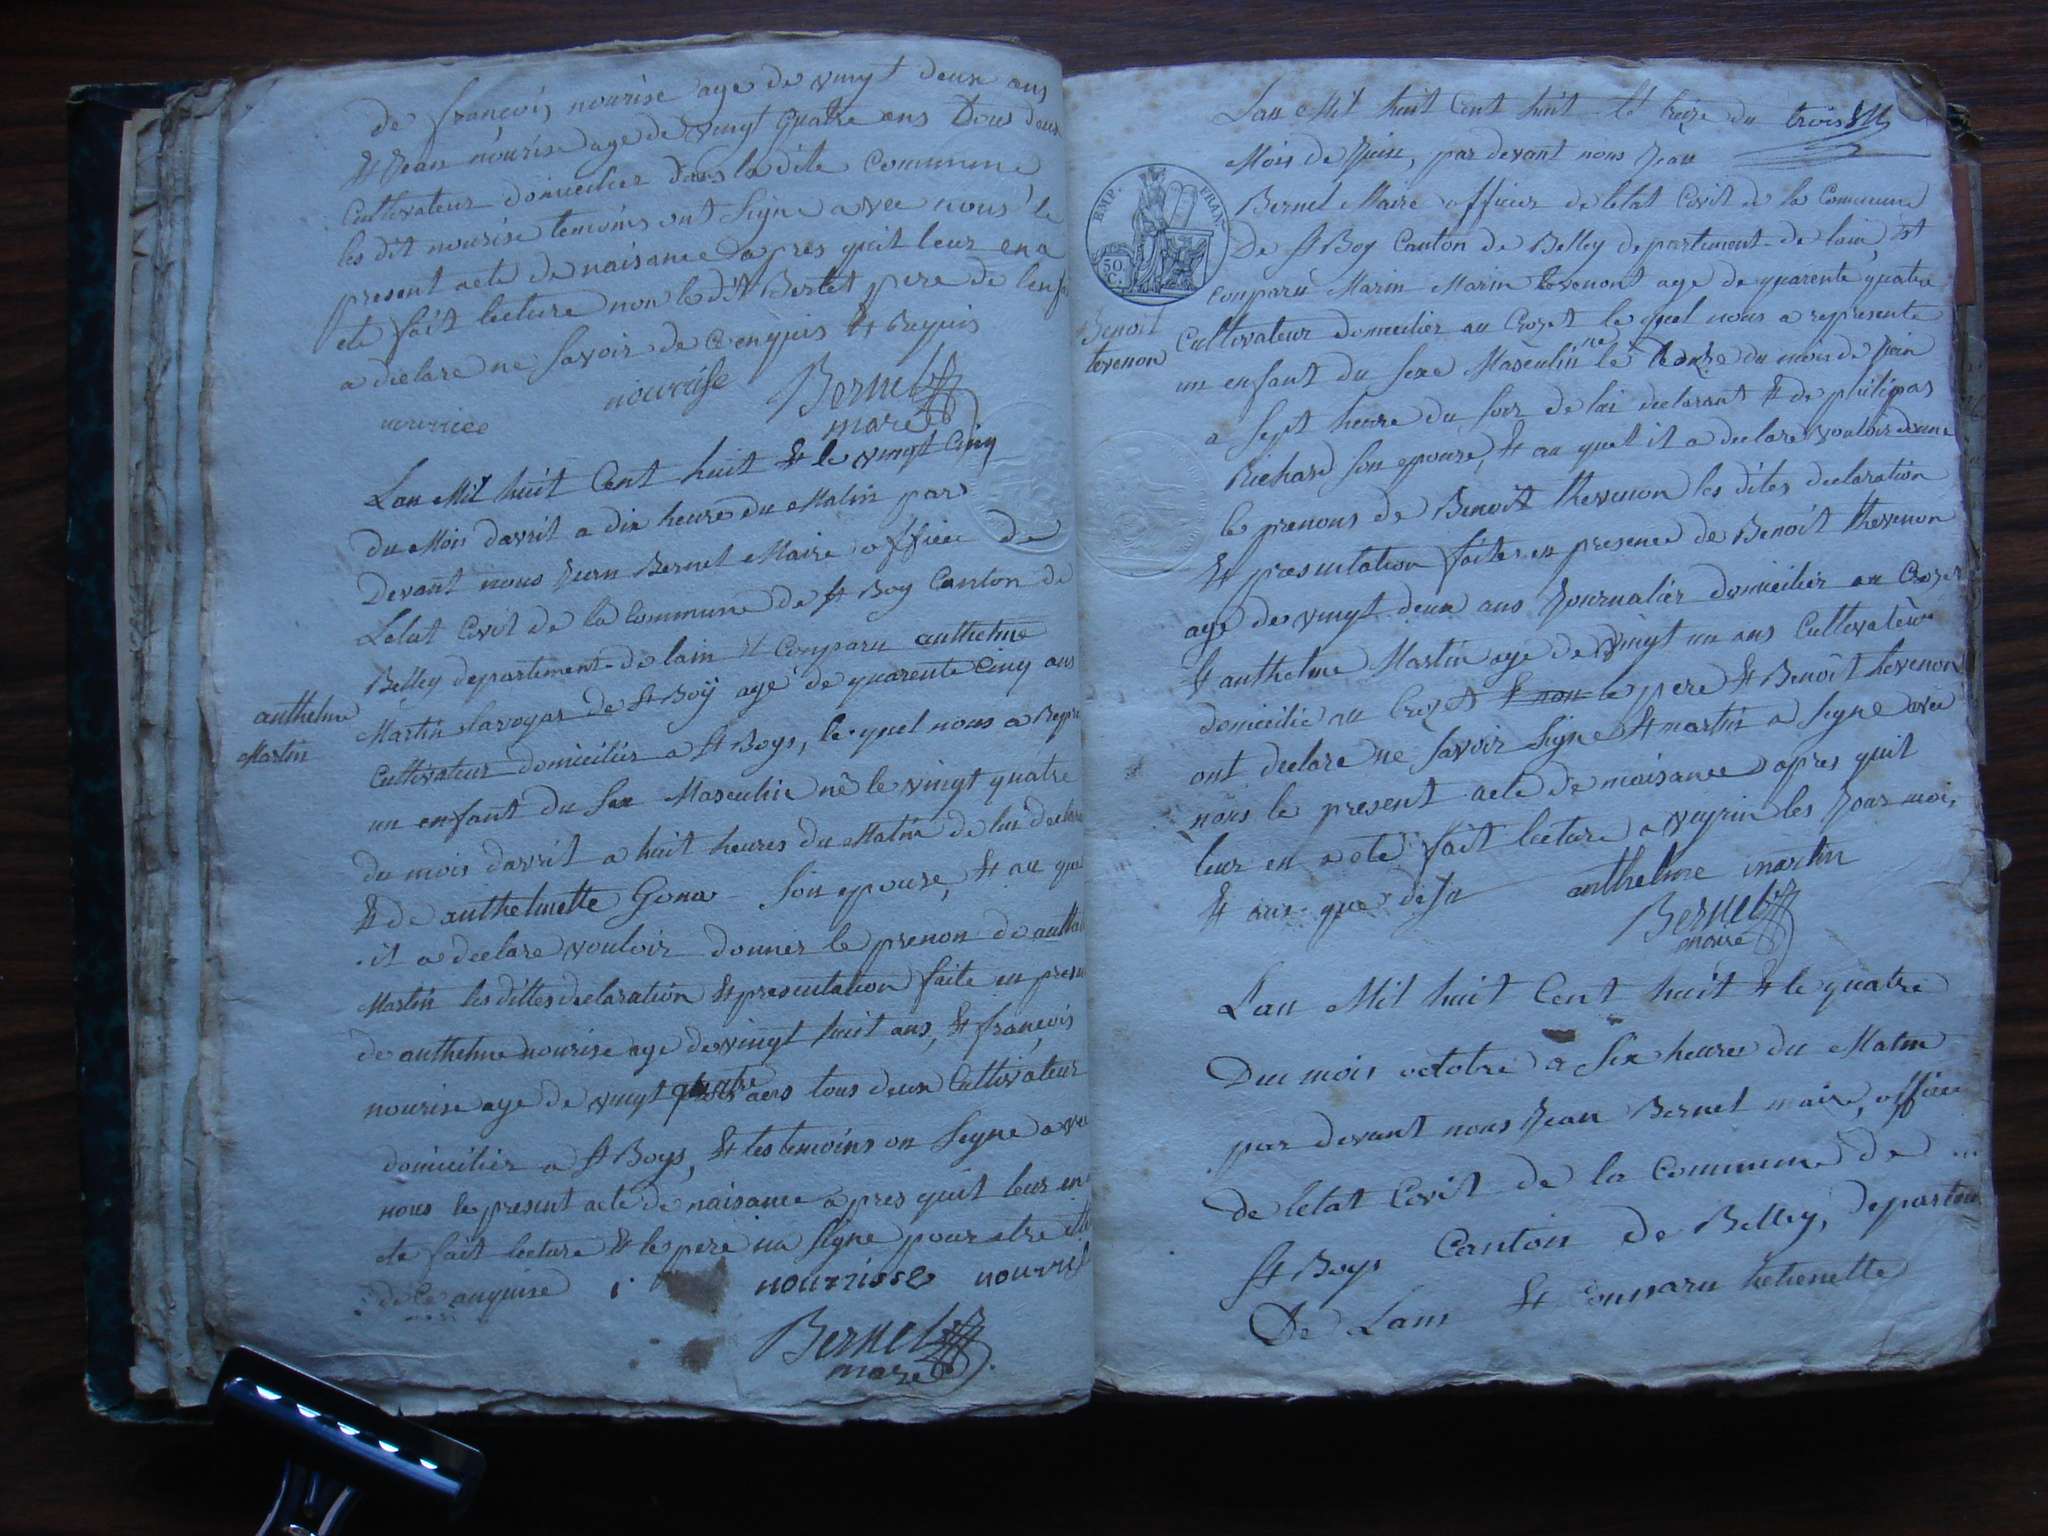 de françois nourise age de vingt deux ans
& Jean nourise age de vingt quatre ans Tous deux
Cultivateur domicilier dans la dite Commune
les dit nourise temoins ont signe avec nous le
present acte de naisance apres quil leur en a
ete fait lecture non le dit Bertet pere de lenf
a declare ne savoir de Cenquis & Requis
nourrice nourrisse Bernel
mare
Lan Mil huit Cent huit & le vingt Cinq
du Mois davril a dix heure du Matin par
Devant nous Jean Bernel Maire officie de
Letat Civil de la Commune de St Boy Canton de
Belley departement de lain & Comparu anthelme
anthelme
Martin
Martin Savoyas de St Boÿ agé de quarente Cinq ans
Cultivateur domicilier a St Boys, le quel nous a Repre
un enfant du Sex Masculin né le vingt quatre
du mois davril a huit heures du Matin de lui decla
& de anthelmette Gona Son epouse, & au que
il a declare vouloir donner le prenon de anthe
Martin les dittes declaration & presentation faite en prese
de anthelme nourise age de vingt huit ans, & françois
nourise age de vingt quatre ans tous deux Cultivateur
domicilier a St Boys, & les temoins on Signe ave
nous le present acte de naisance apres quil leur en
ete fait lecture & le pere na signe pour etre
de Ce anquise nourrisse nourris
Bernel
mare
Lan Mil huit Cent huit le treize du trois
Mois de Juin, par devant nous Jean
EMP. FRAN.
50
C.
Bernel Maire officier de letat Civil de la Commune
De St Boy Canton de Belley departement de lain, &
Benoit
tevenon
comparu Marin Marin tevenont age de quarente quatre
Cultivateur domicilier au Crozet le quel nous a represente
un enfant du Sexe Masculin né le du mois de Juin
a Sept heure du Soir de lui declarant & de philipas
Richard Son epouse, & au quel il a declare vouloir donne
le prenons de Benoit thevenon les dites declaration
& presentation faites en presence de Benoit thevenon
age de vingt deux ans Journalier domicilier au Crozet
& anthelme Martin age de vingt un ans Cultivateur
domicilie au Crozet & non le pere & Benoit tevenon
ont declare ne savoir Signe & martin a Signe avec
nous le present acte de naisance apres quil
leur en a ete fait lecture a veyrin les Jour mois
& ans que desu anthelme martin
Bernel
maire
Lan Mil huit Cent huit & le quatre
Du mois octobre a Six heures du Matin
par devant nous Jean Bernel maire, officie
de letat Civil de la Commune de
St Boys Canton de Belley, departem
De Lain & Comparu